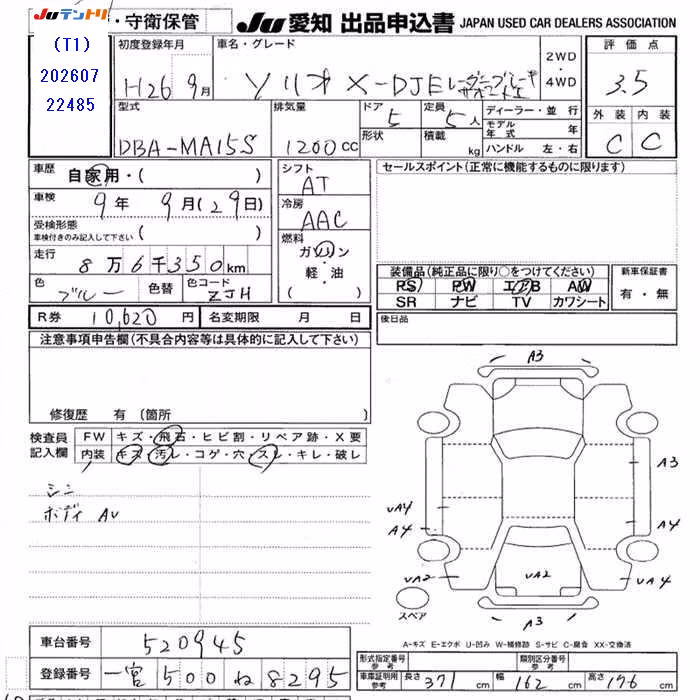 Juテントリ ・守衛保管 Ju 愛知 出品申込書 JAPAN USED CAR DEALERS ASSOCIATION
(T1)
202607
22485
初度登録年月 車名・グレード 2WD ・ 4WD 評価点
H26 9月 ソリオ X-DJE 3.5
型式 排気量 ドア 定員 ディーラー・並行 外装 内装
DBA-MA15S 1200cc 5 5人 モデル年式 年 C C
形状 積載 kg ハンドル 左・右
車歴 自家用・( ) シフト セールスポイント(正常に機能するものに限ります)
AT
車検 9年 9月(29日) 冷房
AAC
受検形態 ( )
車検付きのみ記入して下さい
燃料
走行 ガソリン
8万6千350km ・
軽・油
( )
色 ブルー 色替 色コード ZJH
装備品(純正品に限り○をつけてください) 新車保証書
PS PW エアB AW 有・無
SR ナビ TV カワシート
R券 10,620円 名変期限 月 日 後日品
注意事項申告欄(不具合内容等は具体的に記入して下さい)
修復歴 有(箇所
検査員 FW キズ・飛石・ヒビ割・リペア跡・X要
記入欄 内装 キズ・汚レ・コゲ・穴・スレ・キレ・破レ
シン
ボディ AU
A3
A3
UA4
A4
A4
UA2
UA2
UA4
A3
スペア
A-キズ E-エクボ U-凹み W-補修跡 S-サビ C-腐食 XX-交換済
車台番号 520945
登録番号 一宮 500 ね 8295
形式指定番号 参考 類別区分番号 参考
車庫証明用 参考 長さ 371 cm 幅 162 cm 高さ 176 cm